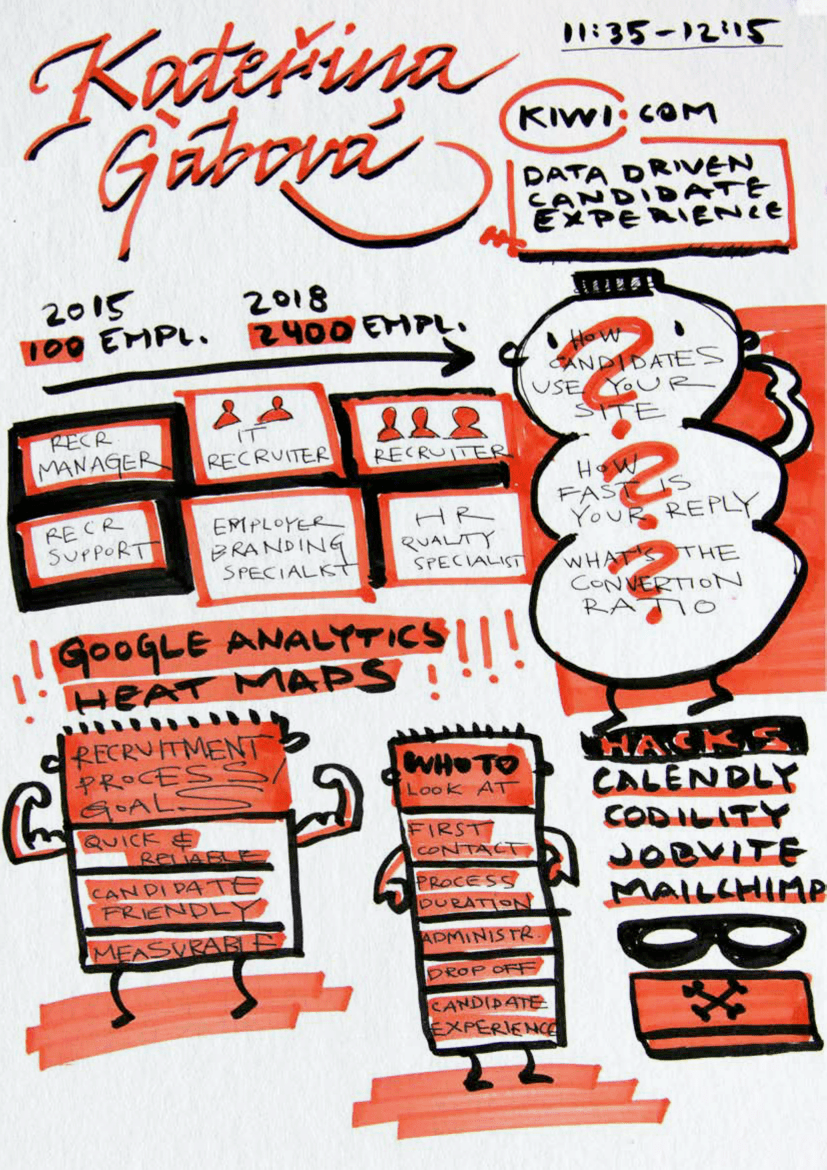 Kateřina
Gábová
11:35-12:15
KIWI.COM
DATA DRIVEN
CANDIDATE
EXPERIENCE
2015
100 EMPL.
2018
2400 EMPL.
RECR
MANAGER
IT
RECRUITER
RECRUITER
RECR
SUPPORT
EMPLOYER
BRANDING
SPECIALIST
HR
QUALITY
SPECIALIST
HOW
CANDIDATES
USE YOUR
SITE
?
HOW
FAST IS
YOUR REPLY
?
WHAT'S THE
CONVERTION
RATIO
?
!!! GOOGLE ANALYTICS !!!!
HEAT MAPS
RECRUITMENT
PROCESS/
GOALS
QUICK &
RELIABLE
CANDIDATE
FRIENDLY
MEASURABLE
WHO TO
LOOK AT
FIRST
CONTACT
PROCESS
DURATION
ADMINISTR.
DROP OFF
CANDIDATE
EXPERIENCE
HACKS
CALENDLY
CODILITY
JOBVITE
MAILCHIMP